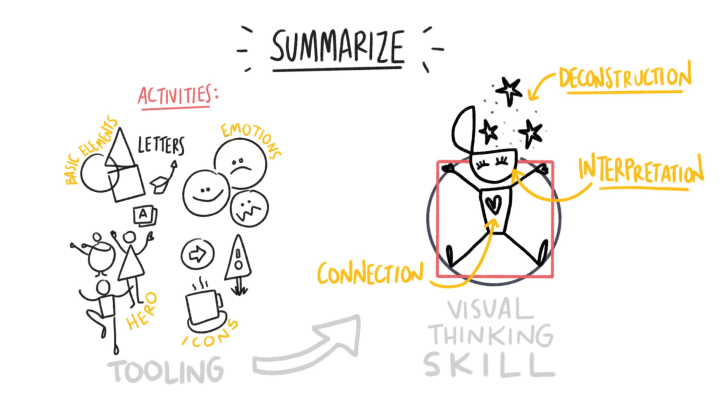 SUMMARIZE
ACTIVITIES:
BASIC ELEMENTS
LETTERS
EMOTIONS
A
HERO
ICONS
TOOLING
DECONSTRUCTION
INTERPRETATION
CONNECTION
VISUAL
THINKING
SKILL